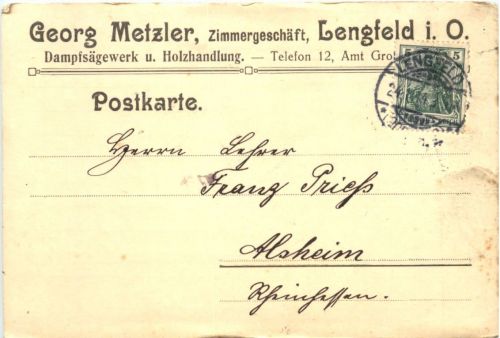 Georg Metzler, Zimmergeschäft, Lengfeld i. O.
Dampfsägewerk u. Holzhandlung. — Telefon 12, Amt Gro
5 5
LENGFELD
Postkarte.
Herrn Lehrer
Franz Priess
Alsheim
Rheinhessen.